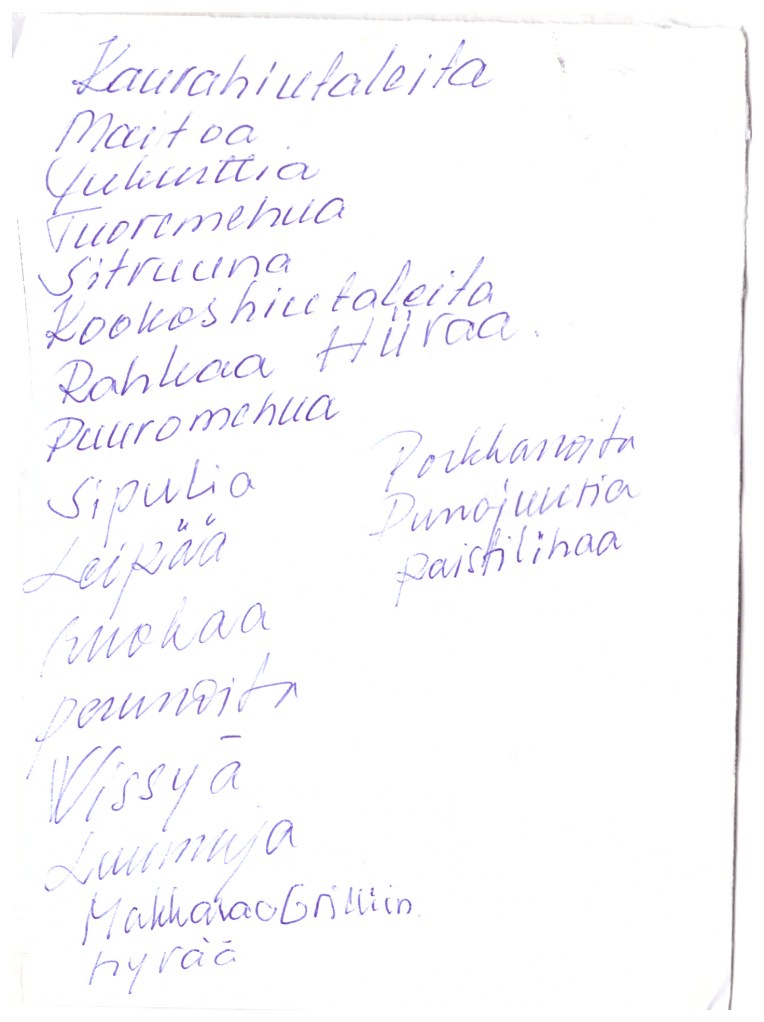 Kaurahiutaleita
Maitoa
Jukurttia
Tuoremehua
Sitruuna
Kookoshiutaleita
Rahkaa Hiivaa.
Puuromehua
Sipulia
Leipää
Ruokaa
perunoita
Vissyä
Luumuja
Makkaraa Grilliin
hyvää
Porkkanoita
Punajuuria
paistilihaa